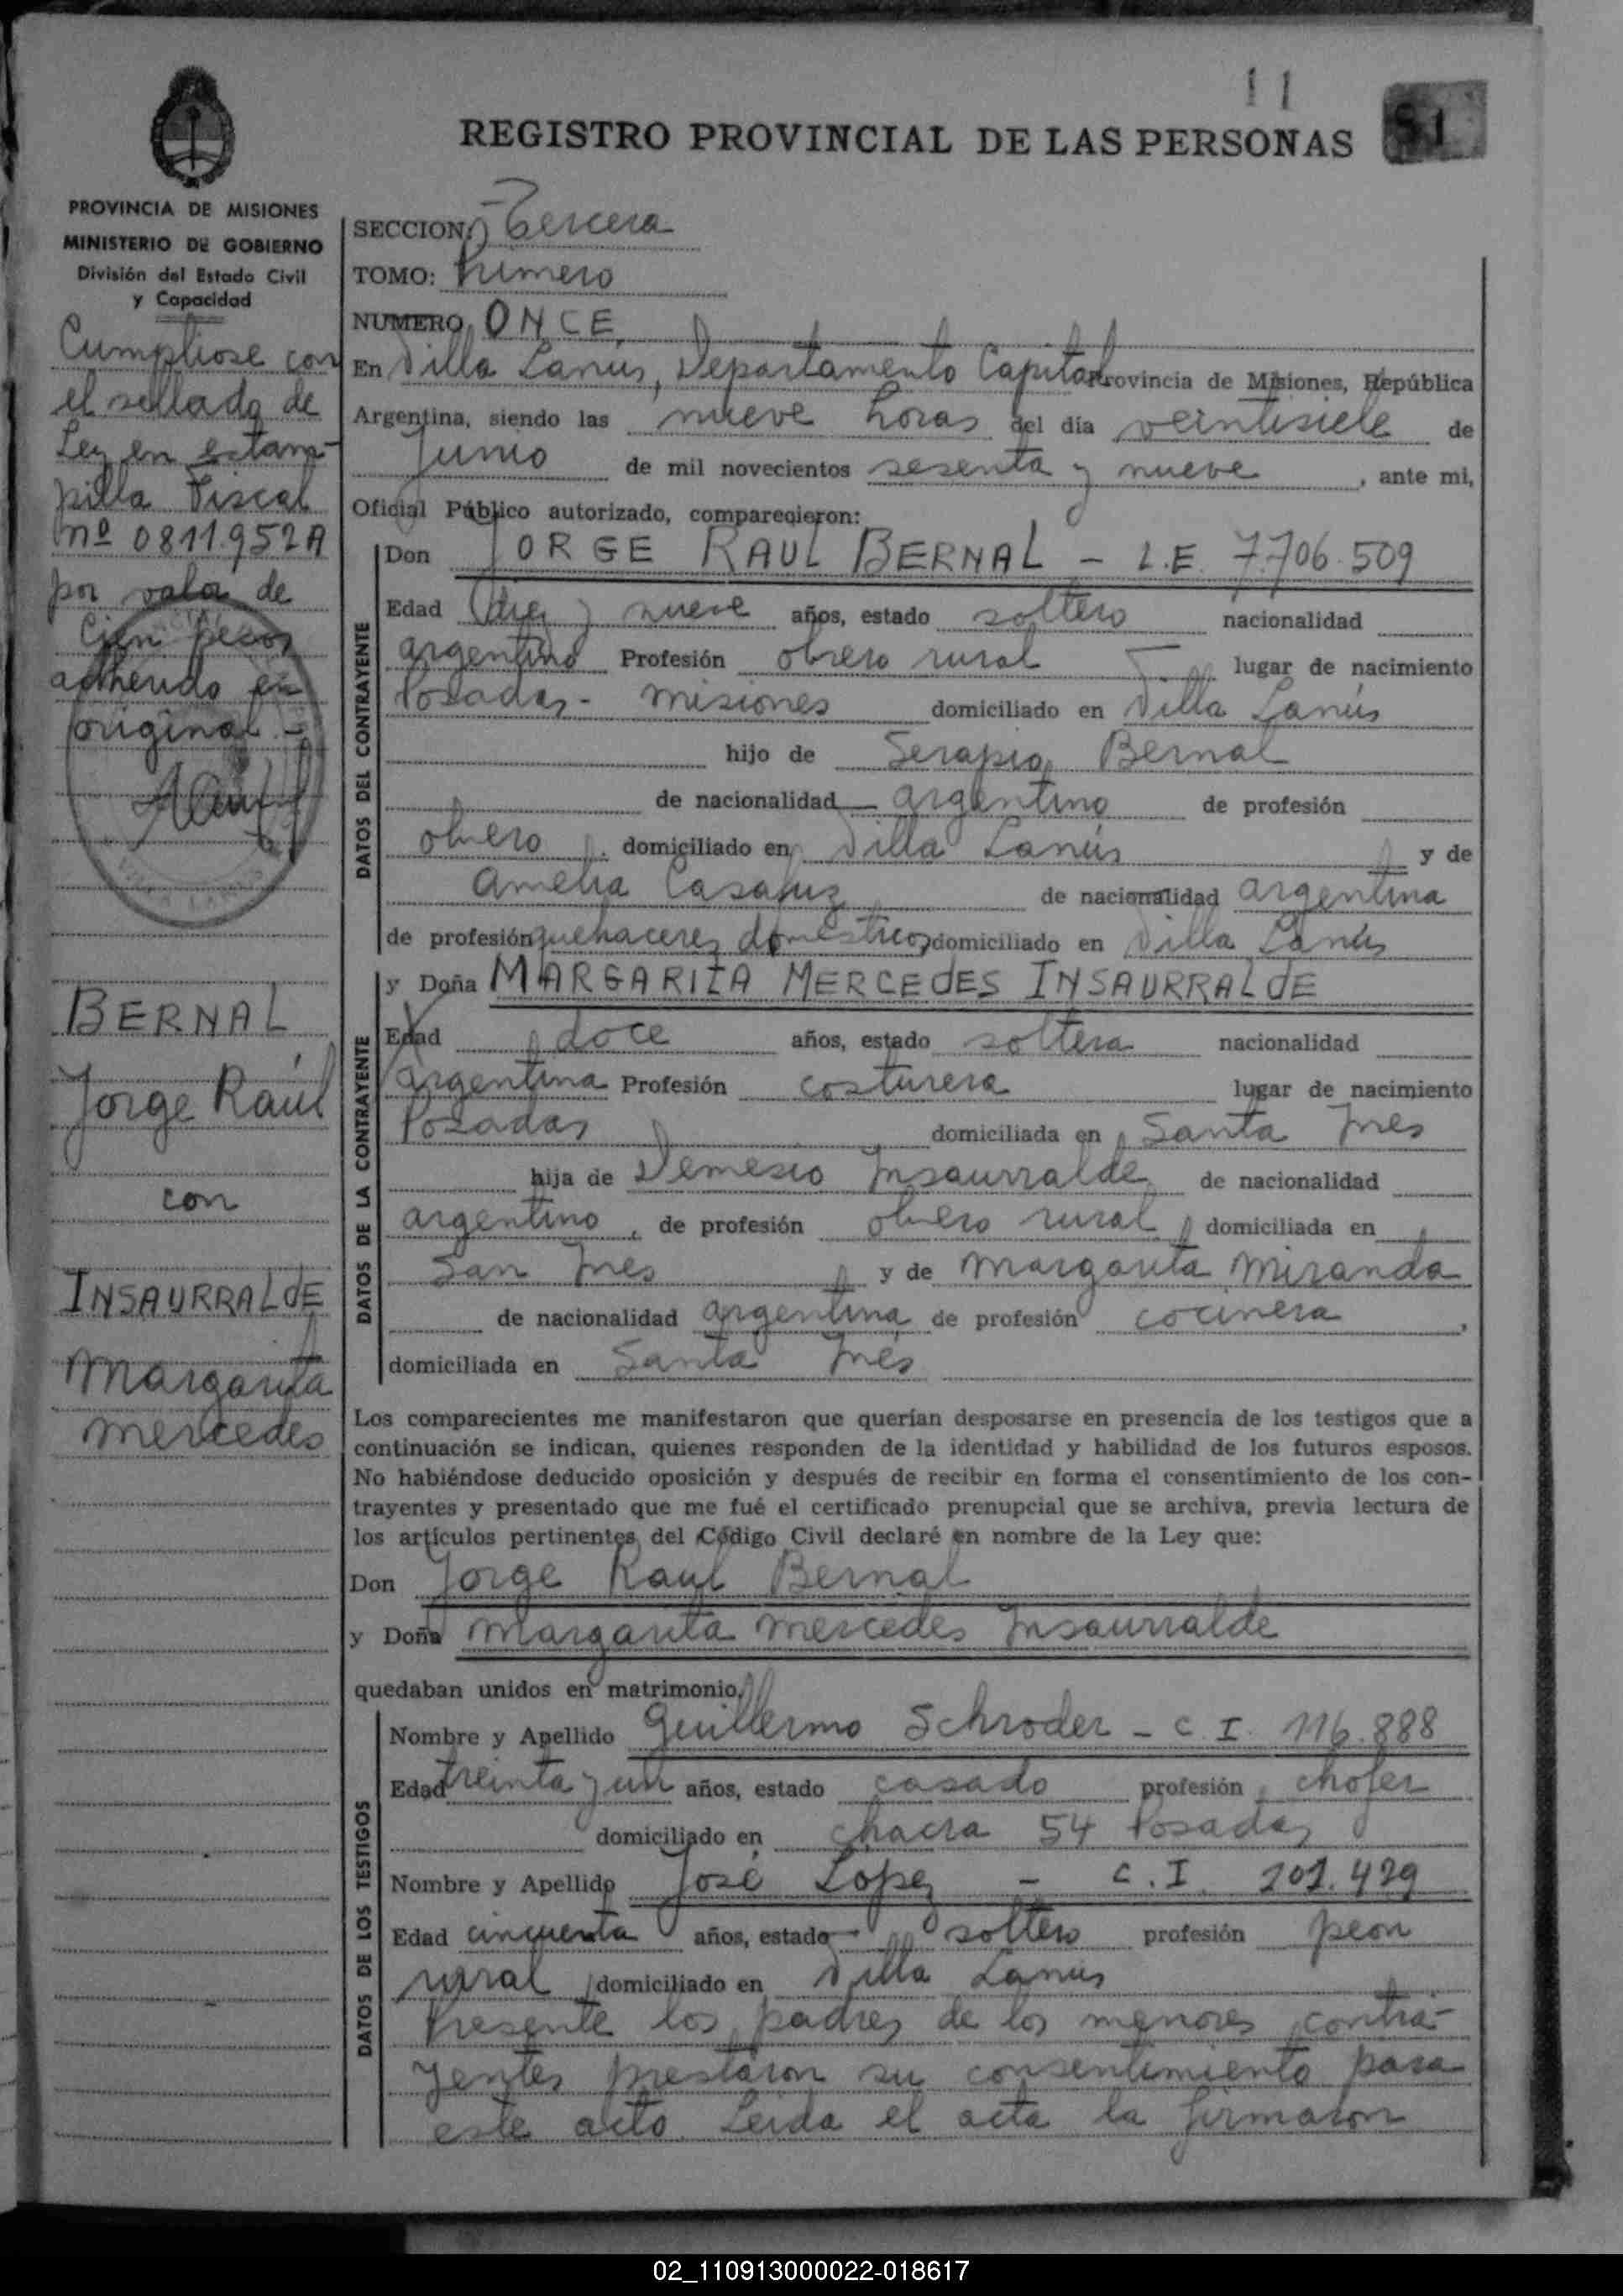 11
REGISTRO PROVINCIAL DE LAS PERSONAS
51
PROVINCIA DE MISIONES
MINISTERIO DE GOBIERNO
División del Estado Civil
y Capacidad
Cumpliose con
el sellado de
Ley en estam-
pilla Fiscal
nº 0811.952A
por valor de
Cien pesos
adherido en
original.-
BERNAL
Jorge Raúl
con
INSAURRALdE
Margarita
Mercedes
SECCION: Tercera
TOMO: Primero
NUMERO ONCE
En Villa Lanús, Departamento Capital Provincia de Misiones, República
Argentina, siendo las nueve horas del día veintisiete de
Junio de mil novecientos sesenta y nueve, ante mi,
Oficial Público autorizado, comparecieron:
DATOS DEL CONTRAYENTE
Don JORGE RAUL BERNAL - L.E. 7.706.509
Edad diez y nueve años, estado soltero nacionalidad
argentino Profesión obrero rural lugar de nacimiento
Posadas - Misiones domiciliado en Villa Lanús
hijo de Serapio Bernal
de nacionalidad argentino de profesión
obrero, domiciliado en Villa Lanús y de
Amelia Casafuz de nacionalidad argentina
de profesión quehaceres domésticos domiciliado en Villa Lanús
DATOS DE LA CONTRAYENTE
y Doña MARGARITA MERCEdES INSAURRALdE
Edad doce años, estado soltera nacionalidad
argentina Profesión costurera lugar de nacimiento
Posadas domiciliada en Santa Ines
hija de Demesio Insaurralde de nacionalidad
argentino, de profesión obrero rural domiciliada en
San Ines y de Margarita Miranda
de nacionalidad argentina de profesión cocinera,
domiciliada en Santa Inés
Los comparecientes me manifestaron que querían desposarse en presencia de los testigos que a
continuación se indican, quienes responden de la identidad y habilidad de los futuros esposos.
No habiéndose deducido oposición y después de recibir en forma el consentimiento de los con-
trayentes y presentado que me fué el certificado prenupcial que se archiva, previa lectura de
los artículos pertinentes del Código Civil declaré en nombre de la Ley que:
Don Jorge Raul Bernal
y Doña Margarita Mercedes Insaurralde
quedaban unidos en matrimonio.
DATOS DE LOS TESTIGOS
Nombre y Apellido Guillermo Schroder - C.I. 116.888
Edad treinta y un años, estado casado profesión chofer
domiciliado en chacra 54 Posadas
Nombre y Apellido José Lopez - C.I. 101.429
Edad cincuenta años, estado soltero profesión peon
rural domiciliado en Villa Lanús
Presente los padres de los menores contra-
yentes prestaron su consentimiento para
este acto. Leida el acta la firmaron
02_110913000022-018617